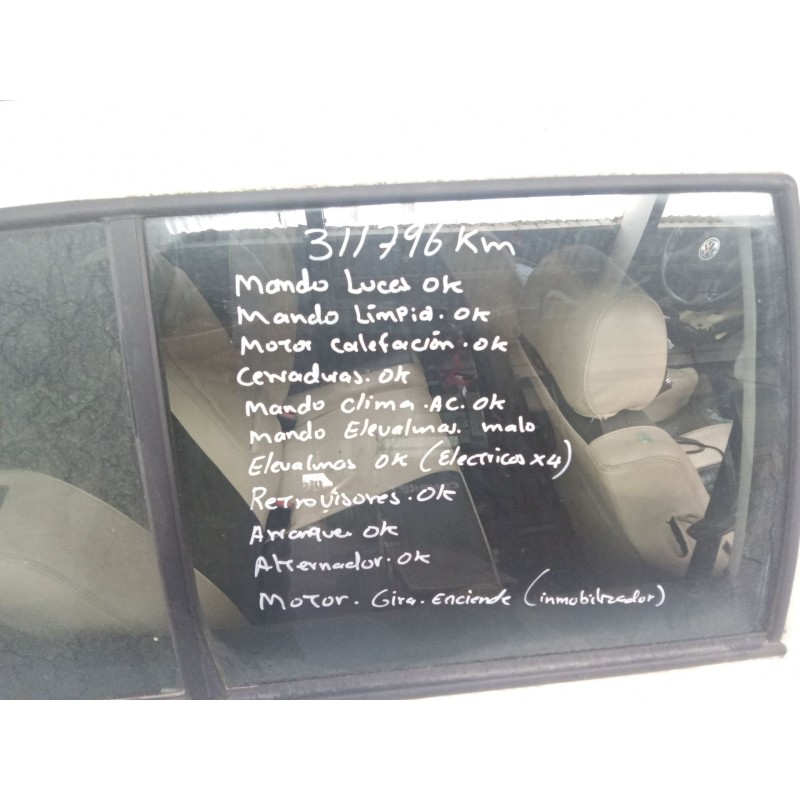 311796 Km
Mando Luces OK
Mando Limpia. OK
Motor Calefación. OK
Cerraduras. OK
Mando Clima. AC. OK
Mando Elevalunas malo
Elevalunas OK (Electricos x4)
Retrovisores. OK
Arranque OK
Alternador. OK
Motor. Gira. enciende (inmobilizador)